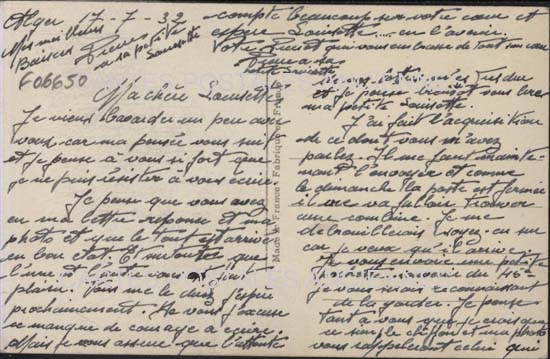 Alger 17-7-32
Mes meilleurs
Baisers
Pierre
à sa petite
Sousette
F06650
Ma chère Sousette
Je viens bavarder un peu avec
vous car ma pensée vous suit
et je pense à vous si fort que
je ne puis résister à vous écrire
Je pense que vous avez
eu ma lettre réponse et ma
photo et que le tout est arrivé
en bon état. Et que
l'une et l'autre vous ont fait
plaisir. Vous me le direz j'espère
prochainement. Je vous j'accuse
ce manque de courage à écrire.
Mais je vous assure que l'attente
et je pense bientôt vous lire
ma petite Sousette.
J'ai fait l'acquisition
de ce dont vous m'avez
parlé. Il me faut mainte-
nant l'envoyer et comme
le dimanche la poste est fermée
il va falloir trouver
une combine. Je me
débrouillerais soyez-en sûr
car je veux qu'il arrive.
Je vous envoie une petite
pochette souvenir du 45e
je vous serais reconnaissant
de la garder. Je pense
tant à vous que je crois que
ce simple chiffon et ma photo
vous rappelleront celui qui
compte beaucoup sur votre cœur et
espère Sousette... en l'avenir.
Votre Pierrot qui vous embrasse de tout son cœur
Pierre à sa
petite Sousette
Made in France - Fabriqué en France